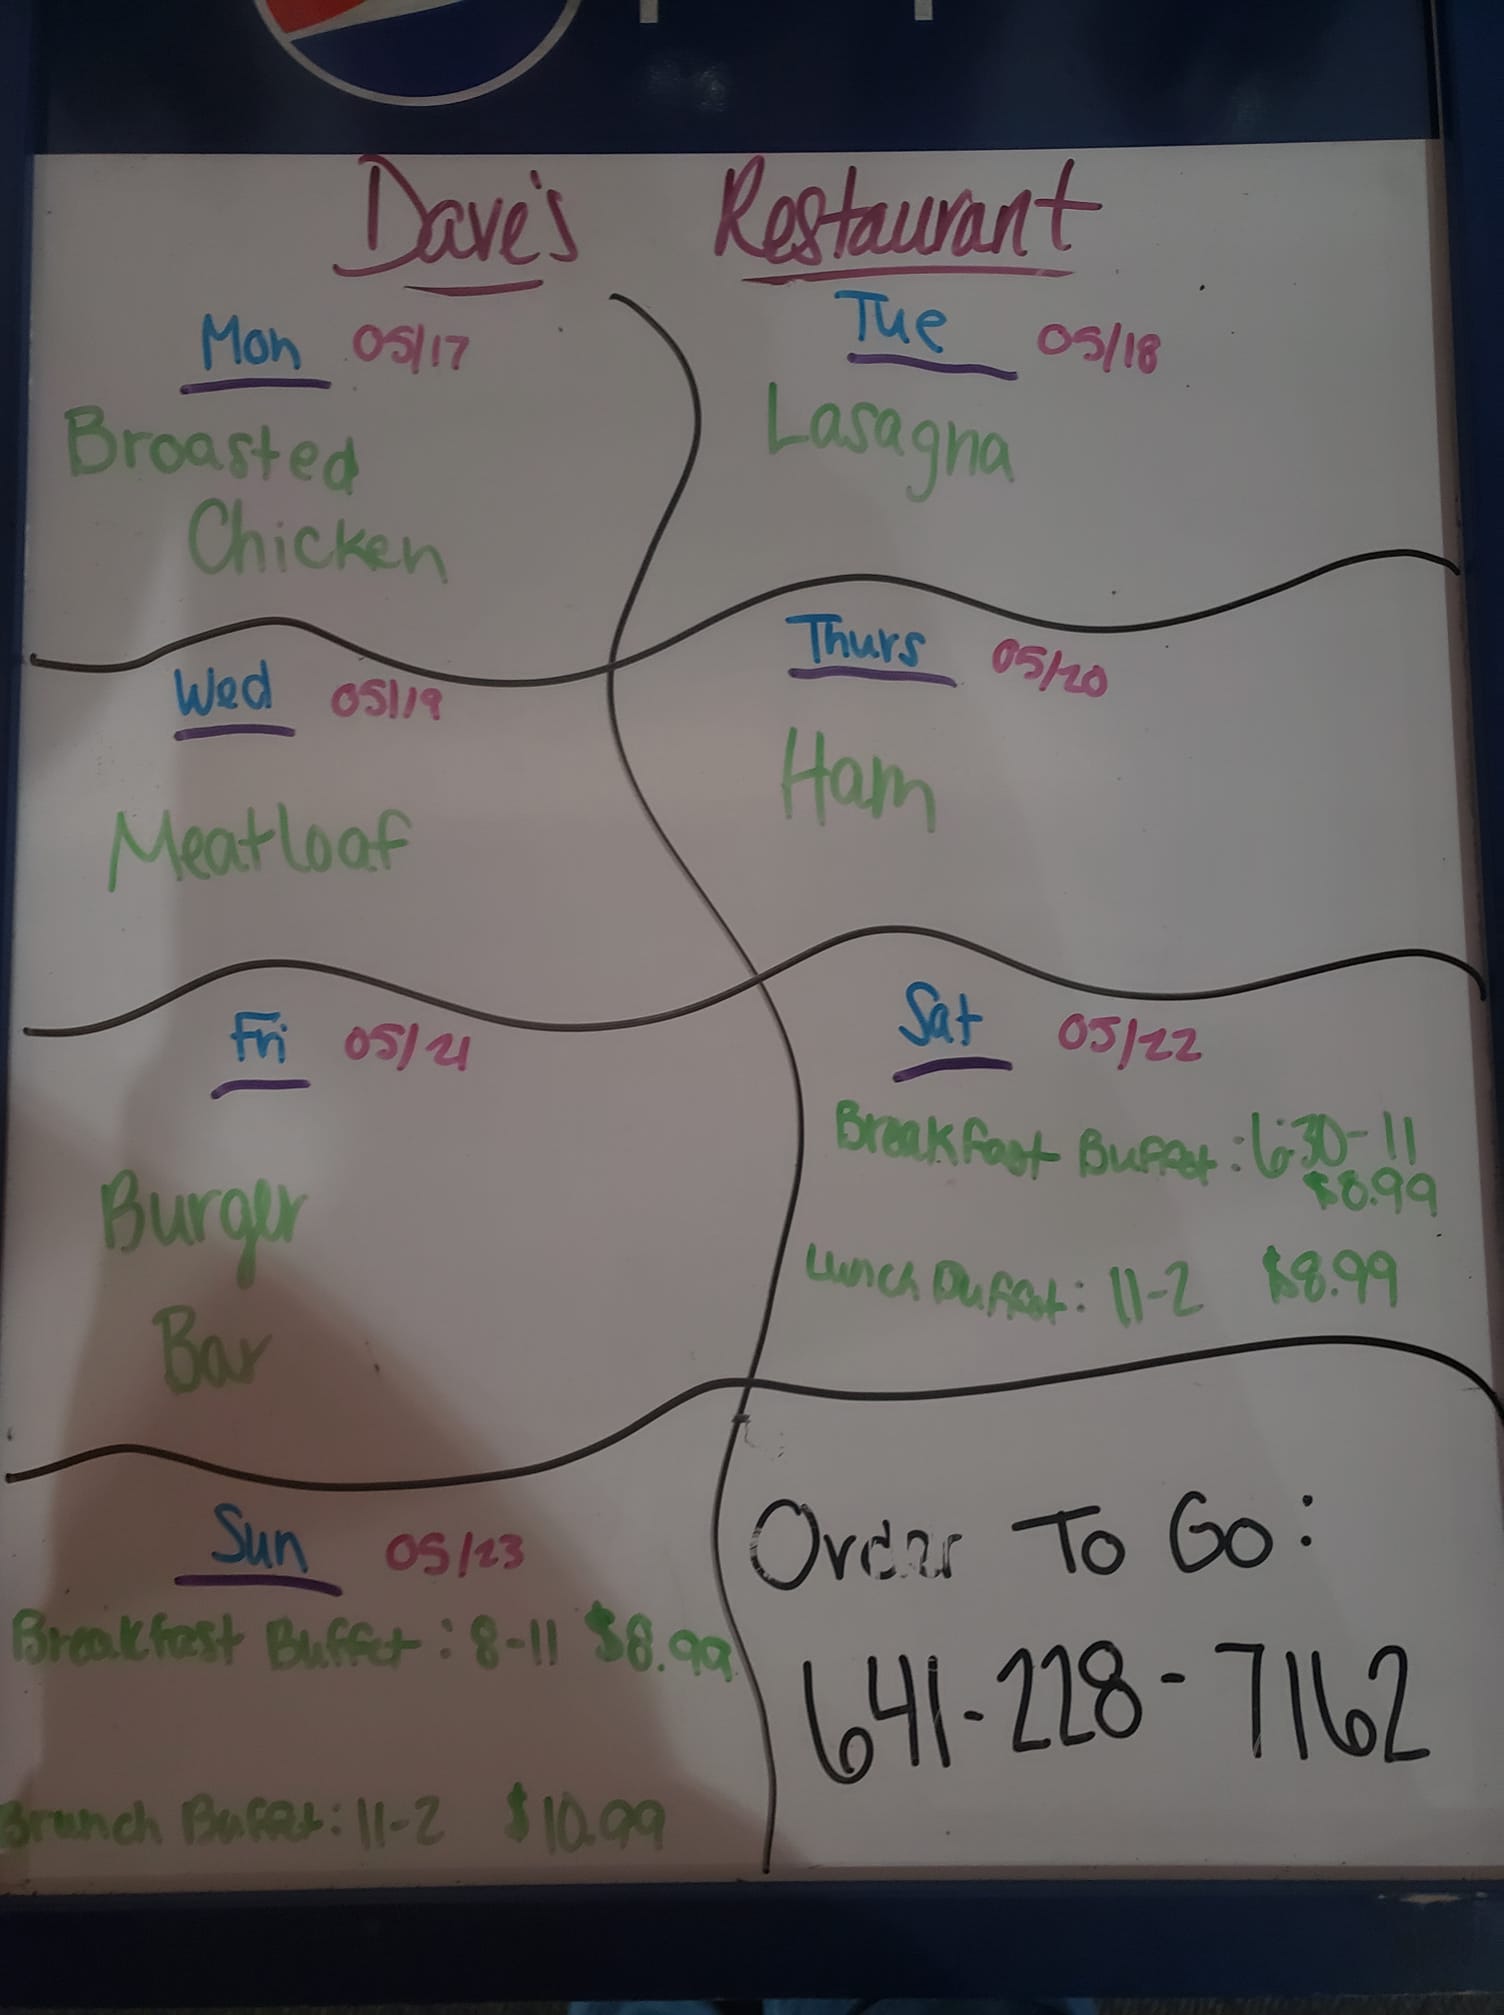 Dave's Restaurant
Mon 05/17
Broasted
Chicken
Tue 05/18
Lasagna
Wed 05/19
Meatloaf
Thurs 05/20
Ham
Fri 05/21
Burger
Bar
Sat 05/22
Breakfast Buffet: 6:30-11
$8.99
Lunch Buffet: 11-2 $8.99
Sun 05/23
Breakfast Buffet: 8-11 $8.99
Brunch Buffet: 11-2 $10.99
Order To Go:
641-228-7162